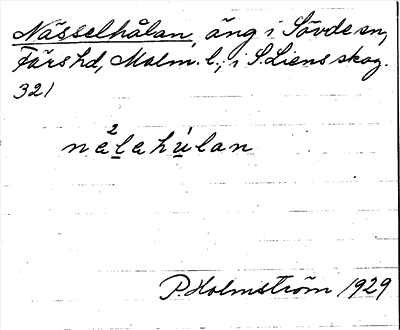 Nässelhålan, äng i Sövde sn,
Färs hd, Malm. l., i S. Liens skog.
321
nä²lahúlan
P. Holmström 1929